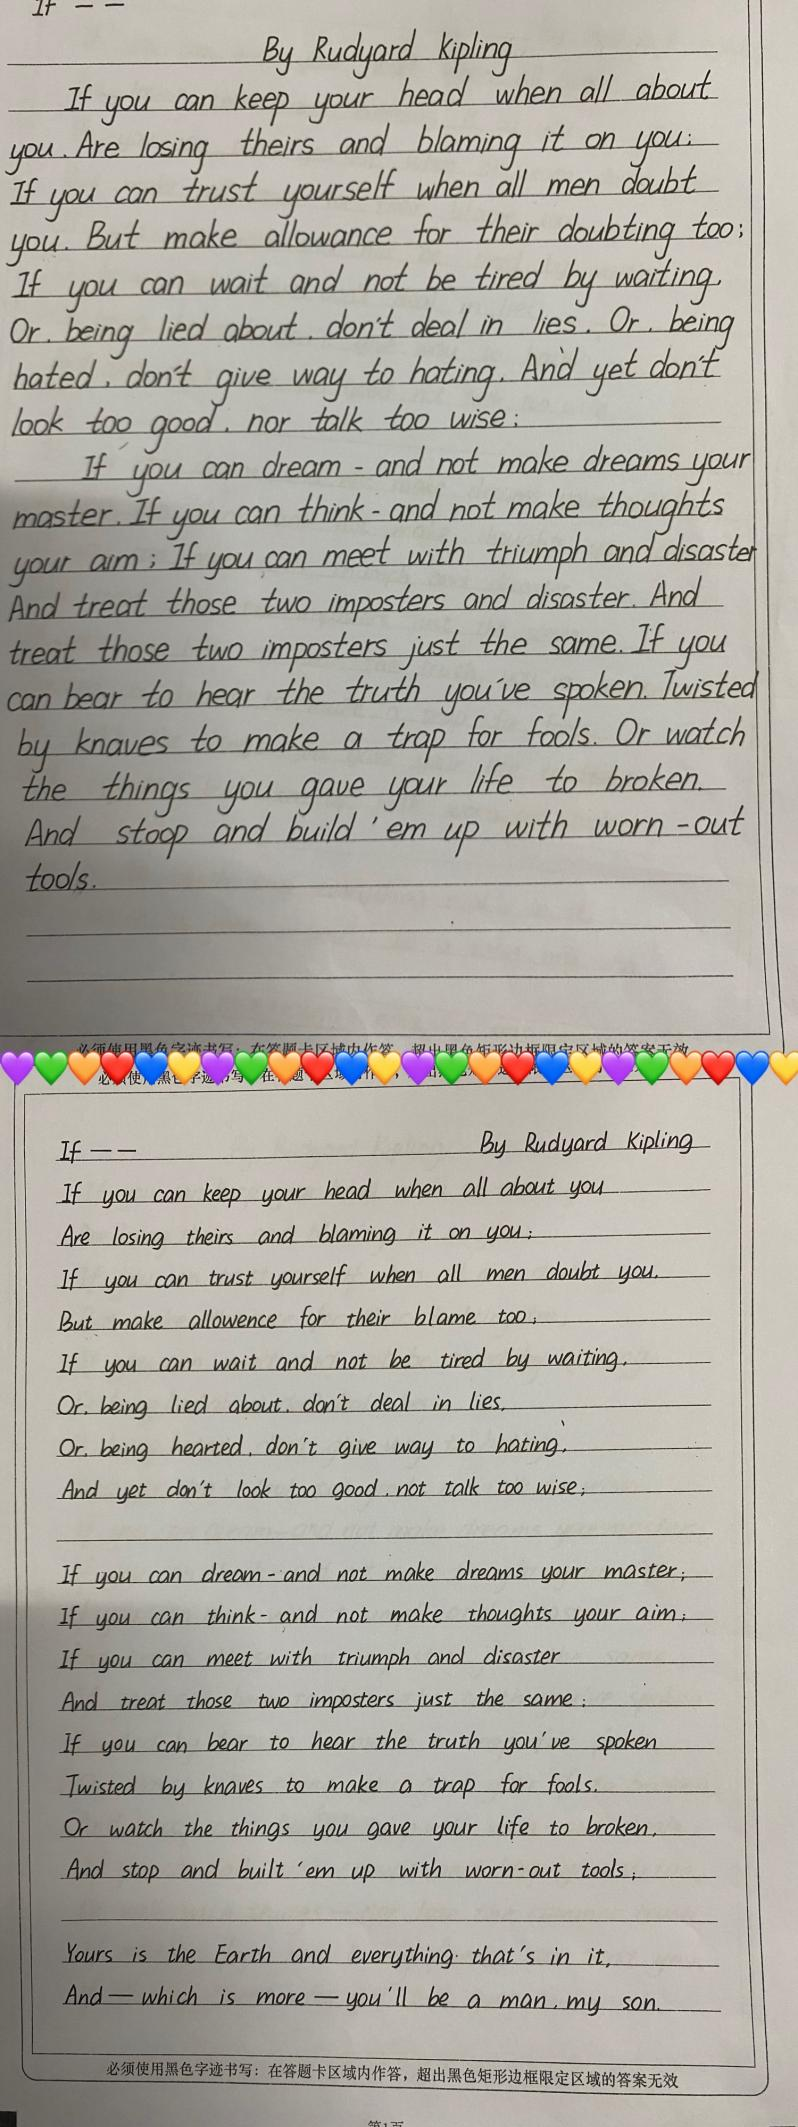 If — —
By Rudyard Kipling
If you can keep your head when all about
you. Are losing theirs and blaming it on you;
If you can trust yourself when all men doubt
you. But make allowance for their doubting too;
If you can wait and not be tired by waiting,
Or, being lied about, don't deal in lies. Or, being
hated, don't give way to hating. And yet don't
look too good, nor talk too wise:
If you can dream - and not make dreams your
master. If you can think - and not make thoughts
your aim; If you can meet with triumph and disaster
And treat those two imposters and disaster. And
treat those two imposters just the same. If you
can bear to hear the truth you've spoken. Twisted
by knaves to make a trap for fools. Or watch
the things you gave your life to broken.
And stoop and build 'em up with worn-out
tools.
必须使用黑色字迹书写：在答题卡区域内作答，超出黑色矩形边框限定区域的答案无效
If — — By Rudyard Kipling
If you can keep your head when all about you
Are losing theirs and blaming it on you;
If you can trust yourself when all men doubt you.
But make allowence for their blame too;
If you can wait and not be tired by waiting,
Or, being lied about, don't deal in lies,
Or, being hearted, don't give way to hating,
And yet don't look too good, not talk too wise;
If you can dream - and not make dreams your master;
If you can think - and not make thoughts your aim;
If you can meet with triumph and disaster
And treat those two imposters just the same;
If you can bear to hear the truth you've spoken
Twisted by knaves to make a trap for fools.
Or watch the things you gave your life to broken,
And stop and built 'em up with worn-out tools;
Yours is the Earth and everything that's in it,
And — which is more — you'll be a man, my son.
必须使用黑色字迹书写：在答题卡区域内作答，超出黑色矩形边框限定区域的答案无效